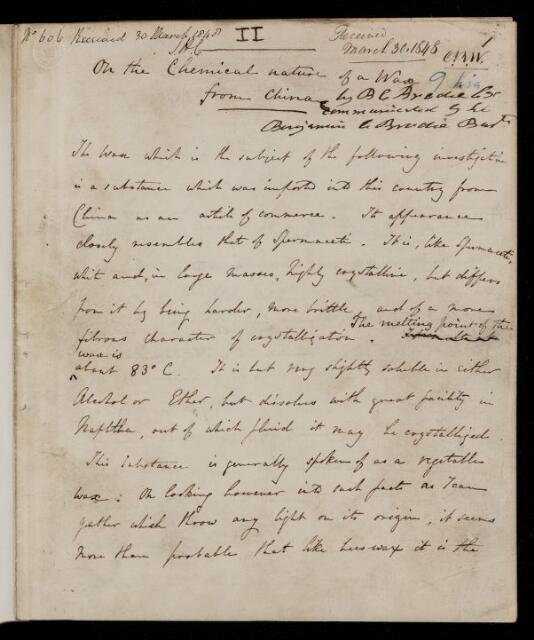 No 606 Received 30 March 1848
II
Received
March 30. 1848
1
On the Chemical nature of a Wax
from China by B C Brodie Esr
communicated by Sir
Benjamin C Brodie Bart
The Wax which is the subject of the following investigation
is a substance which was imported into this country from
China as an article of commerce. Its appearance
closely resembles that of Spermaceti. It is, like Spermaceti,
white and, in large masses, highly crystalline, but differs
from it by being harder, more brittle, and of a more
fibrous character of crystallization. The melting point of the
wax is
about 83° C. It is but very slightly soluble in either
Alcohol or Ether, but dissolves with great facility in
Naphtha, out of which fluid it may be crystallized.
This Substance is generally spoken of as a vegetable
wax: On looking however into such facts as I can
gather which throw any light on its origin, it seems
more than probable that like bees-wax it is the